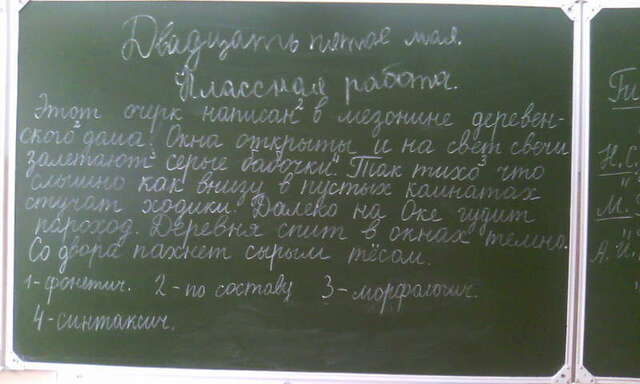 Двадцать пятое мая.
Классная работа.
Этот очерк написан² в мезонине деревен-
ского² дома. Окна открыты и на свет свечи
залетают² серые бабочки.⁴ Так тихо³ что
слышно как внизу в пустых комнатах
стучат ходики. Далеко на Оке гудит
пароход. Деревня спит в окнах темно.
Со двора пахнет сырым тёсом.
1-фонетич. 2-по составу 3-морфологич.
4-синтаксич.
Ги
Н.С
М.
А.И.